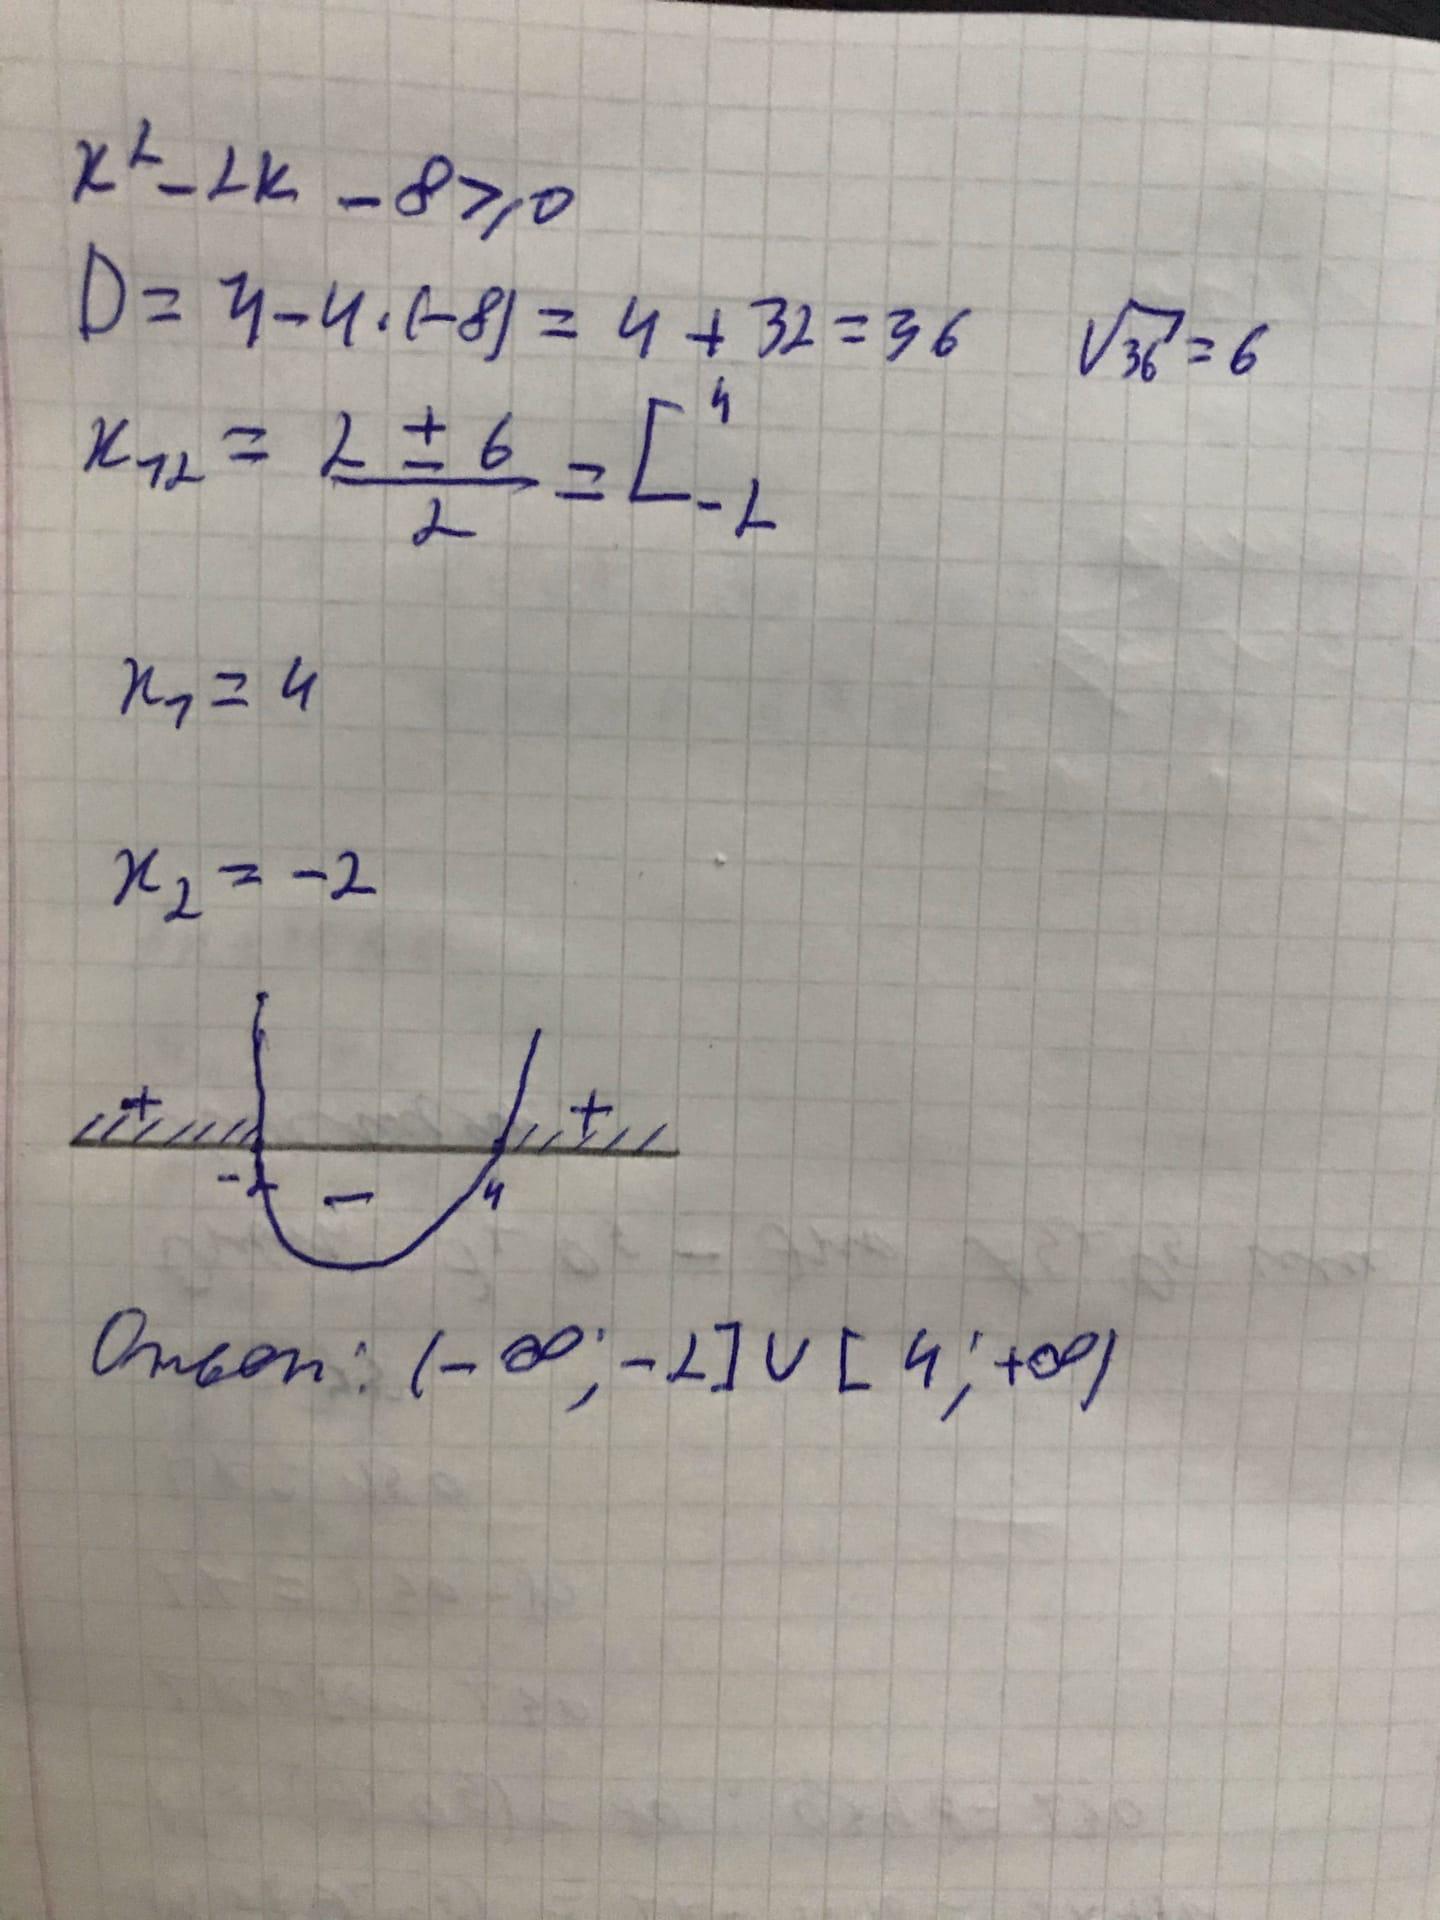 x² - 2x - 8 ⩾ 0
D = 4 - 4 · (-8) = 4 + 32 = 36   √36 = 6
x₁₂ = (2 ± 6)/2 = [ 4 -2
x₁ = 4
x₂ = -2
+ +
-2 − 4
Ответ: (-∞; -2] ∪ [4; +∞)